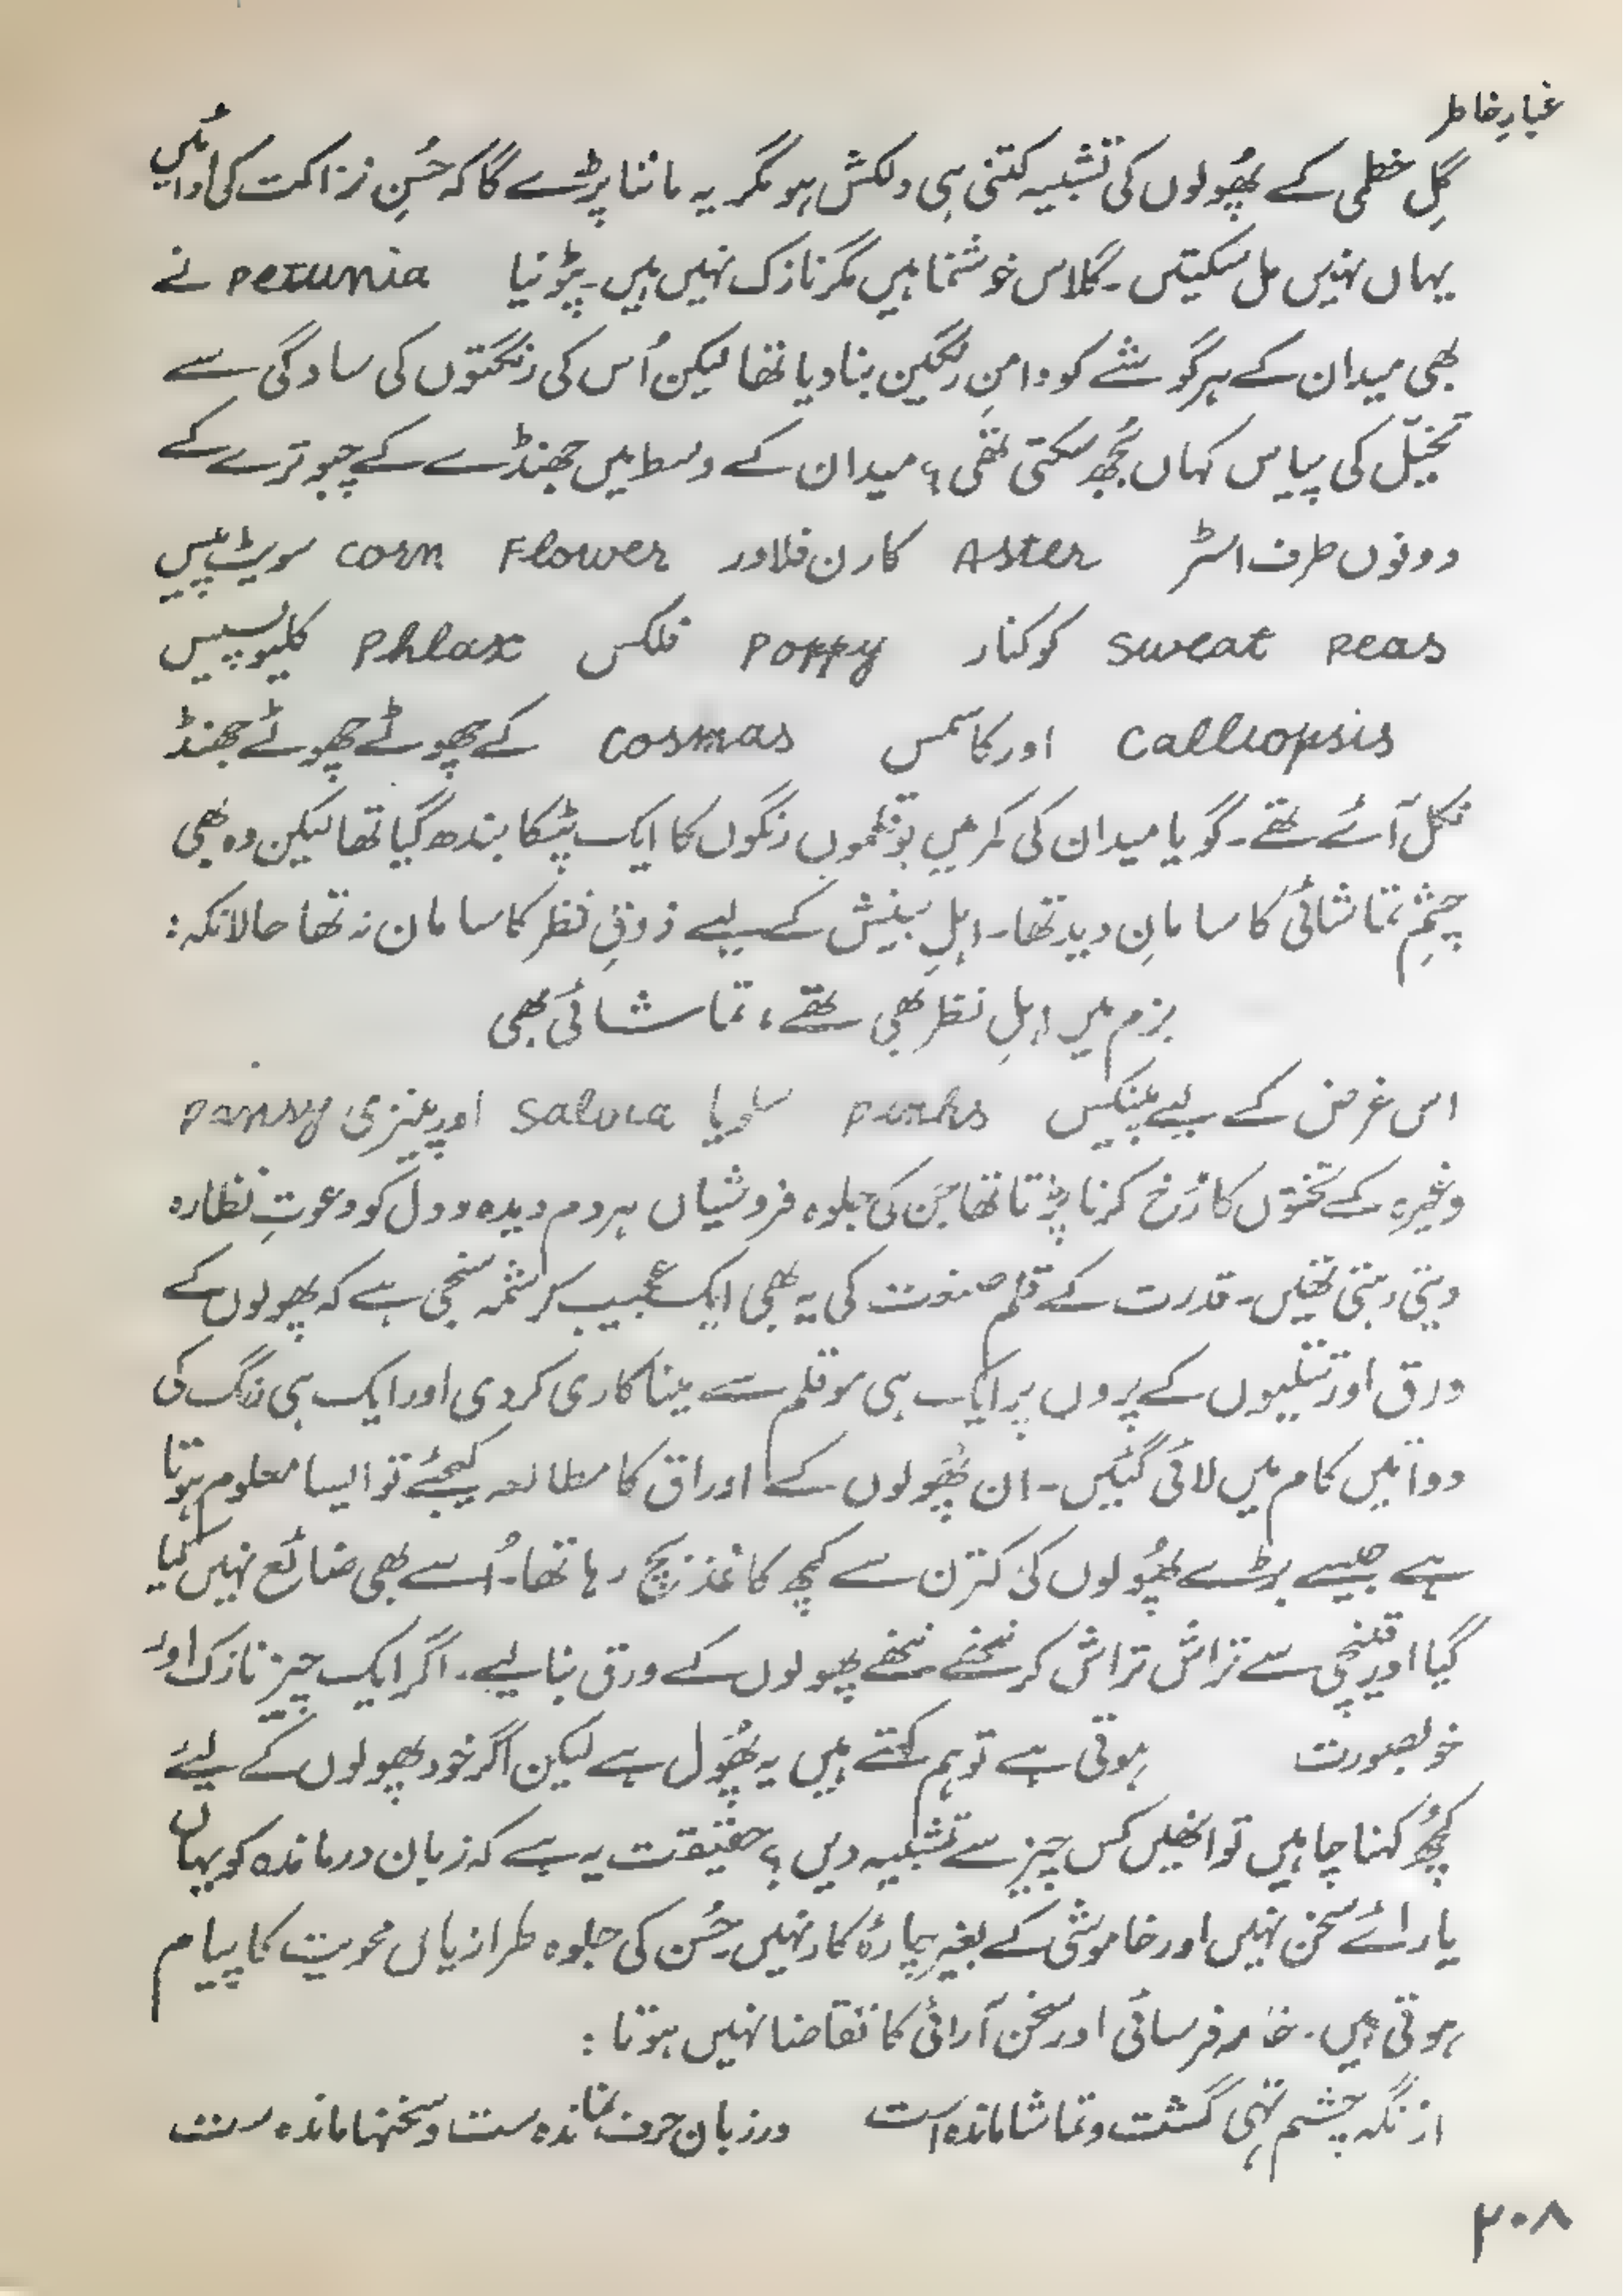 غبارِ خاطر
گلِ خطمی کے پھُولوں کی تشبیہ کتنی ہی دلکش ہو مگر یہ ماننا پڑے گا کہ حُسنِ نزاکت کی ادائیں
یہاں نہیں مل سکیتں۔ گلاس خوشنما ہیں مگر نازک نہیں ہیں۔ پٹونیا petunia نے
بھی میدان کے ہر گوشے کو دامنِ رنگین بنا دیا تھا لیکن اُس کی رنگتوں کی سادگی سے
تخیّل کی پیاس کہاں بُجھ سکتی تھی؟ میدان کے وسط میں جھنڈے کے چبوترے کے
دونوں طرف اسٹر Aster کارن فلاور corn Flower سویٹ پیس
sweat peas کوکنار poppy فلکس phlax کلیوپسیس
calliopsis اور کاسمس cosmas کے چھوٹے چھوٹے جھنڈ
نکل آئے تھے۔ گویا میدان کی کمر میں بوقلموں رنگوں کا ایک پٹکا بندھ گیا تھا لیکن وہ بھی
چشمِ تماشائی کا سامانِ دید تھا۔ اہلِ بینش کے لیے ذوقِ نظر کا سامان نہ تھا حالانکہ:
بزم میں اہلِ نظر بھی تھے، تماشائی بھی
اس غرض کے لیے پنکیس pinks سلویا salvia اور پینزی pansy
وغیرہ کے تختوں کا رُخ کرنا پڑتا تھا جن کی جلوہ فروشیاں ہر دم دیدہ و دل کو دعوتِ نظارہ
دیتی رہتی تھیں۔ قدرت کے قلم صنعت کی یہ بھی ایک عجیب کرشمہ سنجی ہے کہ پھولوں کے
ورق اور تتلیوں کے پروں پر ایک ہی موقلم سے مینا کاری کر دی اور ایک ہی رنگ کی
دواتیں کام میں لائی گئیں۔ ان پھُولوں کے اوراق کا مطالعہ کیجئے تو ایسا معلوم ہوتا
ہے جیسے بڑے پھُولوں کی کترن سے کچھ کاغذ بچ رہا تھا۔ اُسے بھی ضائع نہیں کیا
گیا اور قینچی سے تراش تراش کر ننھے ننھے پھولوں کے ورق بنا لیے۔ اگر ایک چیز نازک اور
خوبصورت ہوتی ہے تو ہم کہتے ہیں یہ پھُول ہے لیکن اگر خود پھولوں کے لیے
کچھُ کہنا چاہیں تو انھیں کس چیز سے تشبیہ دیں؟ حقیقت یہ ہے کہ زبان درماندہ کو یہاں
یارائے سخن نہیں اور خاموشی کے بغیر چارۂ کار نہیں۔ حُسن کی جلوہ طرازیاں محویت کا پیام
ہوتی ہیں۔ خامہ فرسائی اور سخن آرائی کا تقاضا نہیں ہوتا:
از نگہ چشم تہی گشت و تماشا ماندہ است در زبان حرف نماندہ ست و سخنہا ماندہ ست
۲۰۸